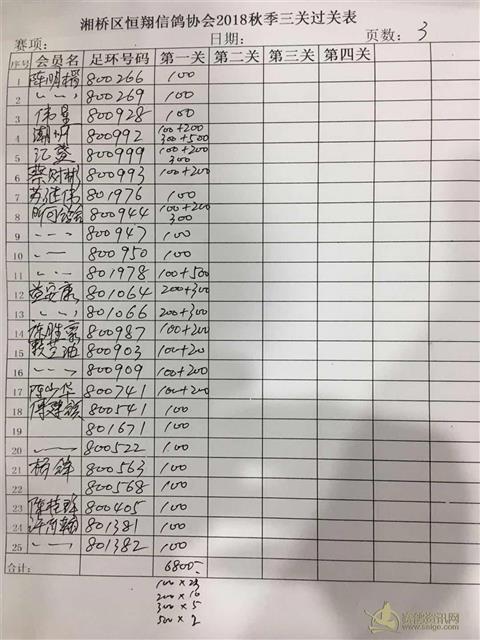 湘桥区恒翔信鸽协会2018秋季三关过关表
赛项: 日期: 页数: 3
序号 会员名 足环号码 第一关 第二关 第三关 第四关
1 陈明楷 800266 100
2 〃 800269 100
3 伟星 800928 100
4 潮州 800992 100+200 300+500
5 汇益 800999 100+200 300
6 蔡财彬 800993 100+200
7 苏继伟 801976 100
8 800944 100+200 300
9 〃 800947 100
10 〃 800950 100
11 〃 801978 100+500
12 益安康 801064 200+300
13 〃 801066 200+300
14 陈胜豪 800987 100+200
15 赖芝油 800903 100+20
16 〃 800909 100+200
17 陈少华 800741 100+200
18 800541 100
19 801671 100
20 〃 800522 100
21 杨锋 800563 100
22 800568 100
23 陈桂群 800405 100
24 801381 100
25 〃 801382 100
合计: 6800-
100×23
200×10
300×5
500×2
赛鸽资讯网
www.saige.com